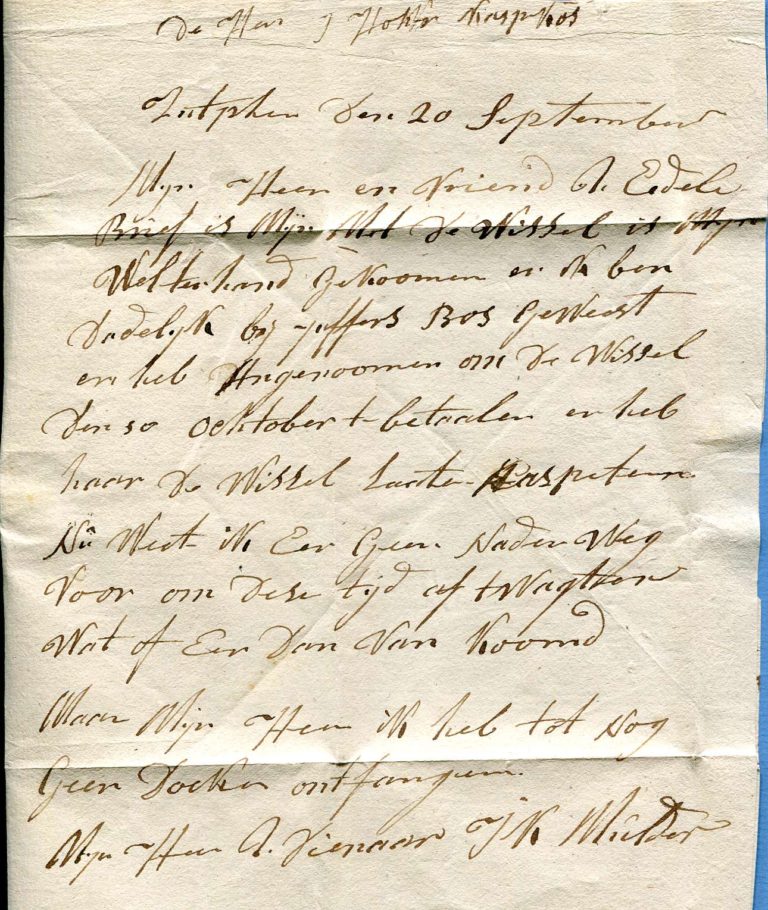 De Heer J
Zutphen Den 20 September
Mijn Heer en Vriend U Eedele
Brief is Mijn Met De Wissel is Mijn
Welterhand gekoomen en ik ben
Dadelijk bij Juffers Bos Geweest
en heb Angenoomen om De Wissel
Den 10 ocktober t betaalen en heb
haar De Wissel laaten
Nu Weet ik Eer Geen Nader Weg
Voor om Dese tijd af t Wagten
Wat of Eer Dan Van koomd
Maar Mijn Heer ik heb tot Nog
Geen Doeken ontfangen.
Mijn Heer U. Dienaar J K Mulder